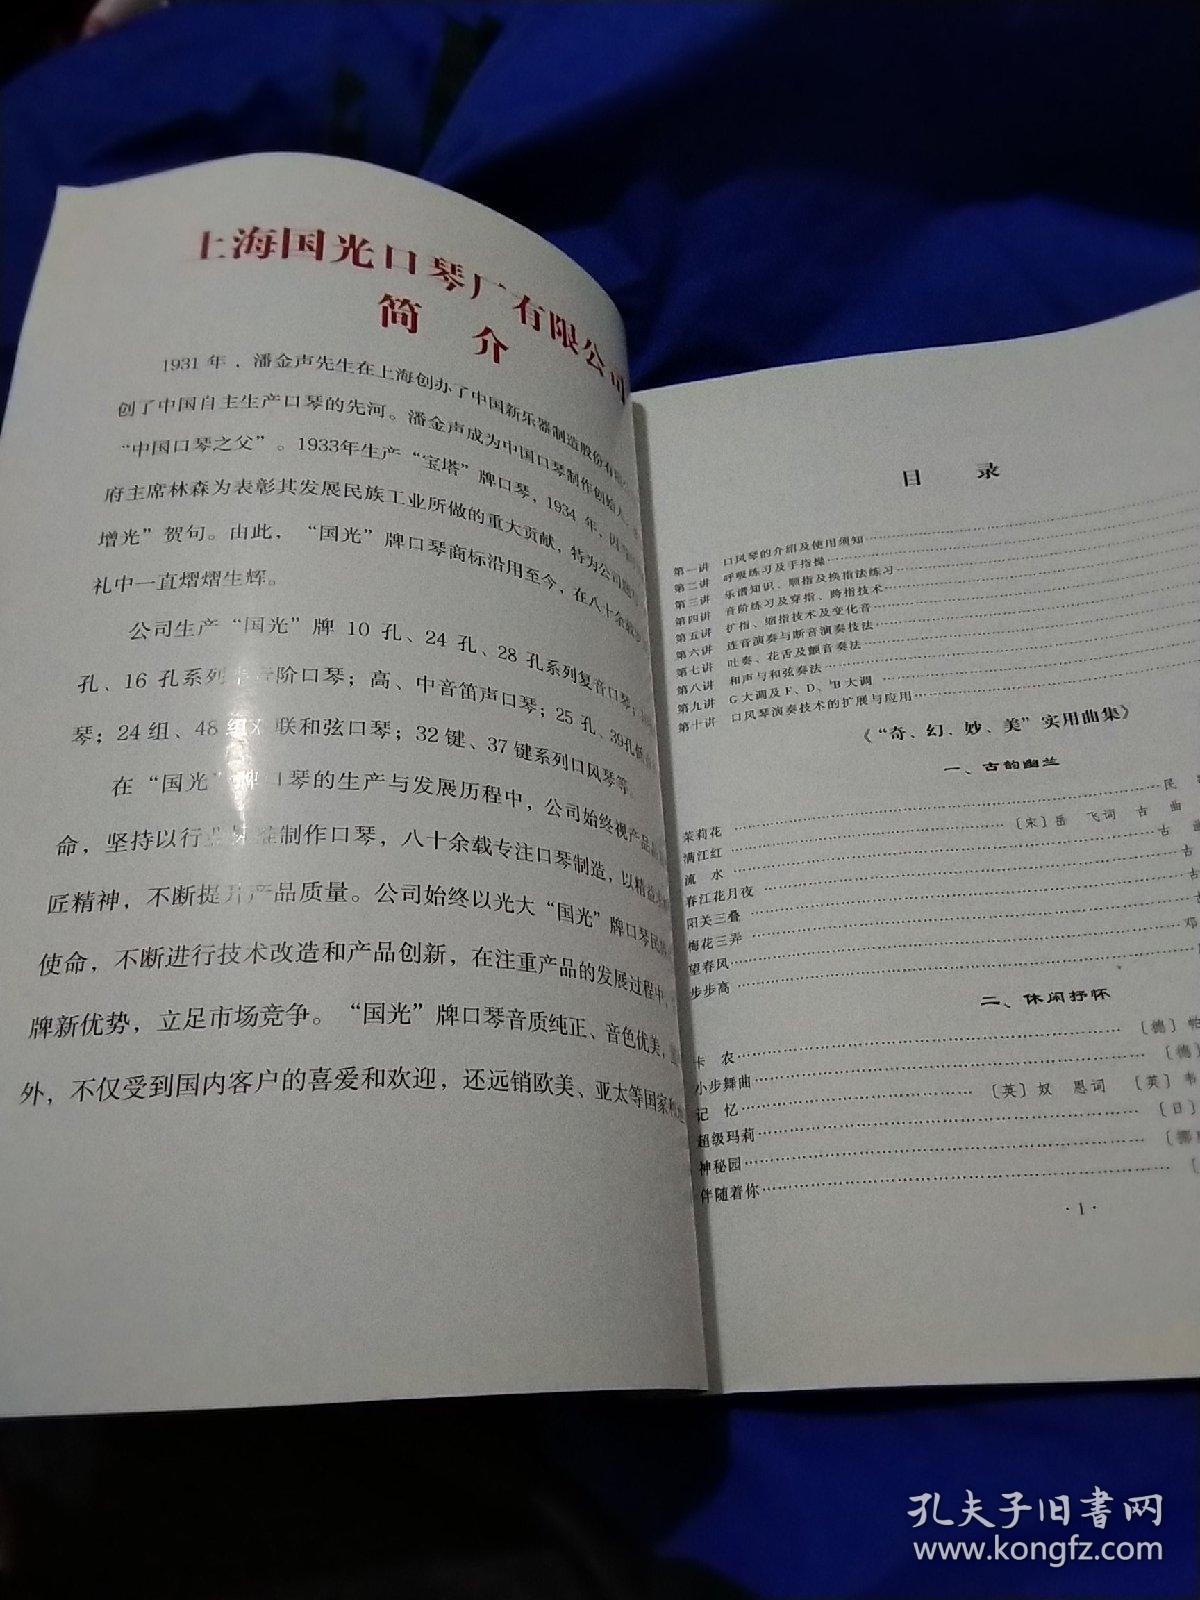 上海国光口琴厂有限公司
简 介
1931 年，潘金声先生在上海创办了中国新乐器制造股份有限
创了中国自主生产口琴的先河。潘金声成为中国口琴制作创始人、
“中国口琴之父”。1933年生产“宝塔”牌口琴，1934 年，因
府主席林森为表彰其发展民族工业所做的重大贡献，特为公司
增光”贺句。由此，“国光”牌口琴商标沿用至今，在八十余载
礼中一直熠熠生辉。
公司生产“国光”牌 10 孔、24 孔、28 孔系列复音口琴；
孔、16 孔系列 音阶口琴；高、中音笛声口琴；25 孔、39孔
琴；24 组、48 组 联和弦口琴；32 键、37 键系列口风琴等。
在“国光”牌口琴的生产与发展历程中，公司始终视产品
命，坚持以行业 准制作口琴，八十余载专注口琴制造，以精益
匠精神，不断提升产品质量。公司始终以光大“国光”牌口琴民
使命，不断进行技术改造和产品创新，在注重产品的发展过程中，
牌新优势，立足市场竞争。“国光”牌口琴音质纯正、音色优美，
外，不仅受到国内客户的喜爱和欢迎，还远销欧美、亚太等国家
目 录
第一讲 口风琴的介绍及使用须知
第二讲 呼吸练习及手指操
第三讲 乐谱知识、顺指及换指法练习
第四讲 音阶练习及穿指、跨指技术
第五讲 扩指、缩指技术及变化音
第六讲 连音演奏与断音演奏技法
第七讲 吐奏、花舌及颤音奏法
第八讲 和声与和弦奏法
第九讲 G大调及F、D、♭B大调
第十讲 口风琴演奏技术的扩展与应用
《“奇、幻、妙、美”实用曲集》
一、古韵幽兰
茉莉花 民
满江红 〔宋〕岳 飞词 古 曲
流 水 古
春江花月夜 古
阳关三叠 古
梅花三弄
望春风 邓
步步高
二、休闲抒怀
卡 农 〔德〕帕
小步舞曲 〔德〕
记 忆 〔英〕奴 恩词 〔英〕韦
超级玛莉 〔日〕
神秘园 〔挪
伴随着你 〔
·1·
孔夫子旧书网
www.kongfz.com